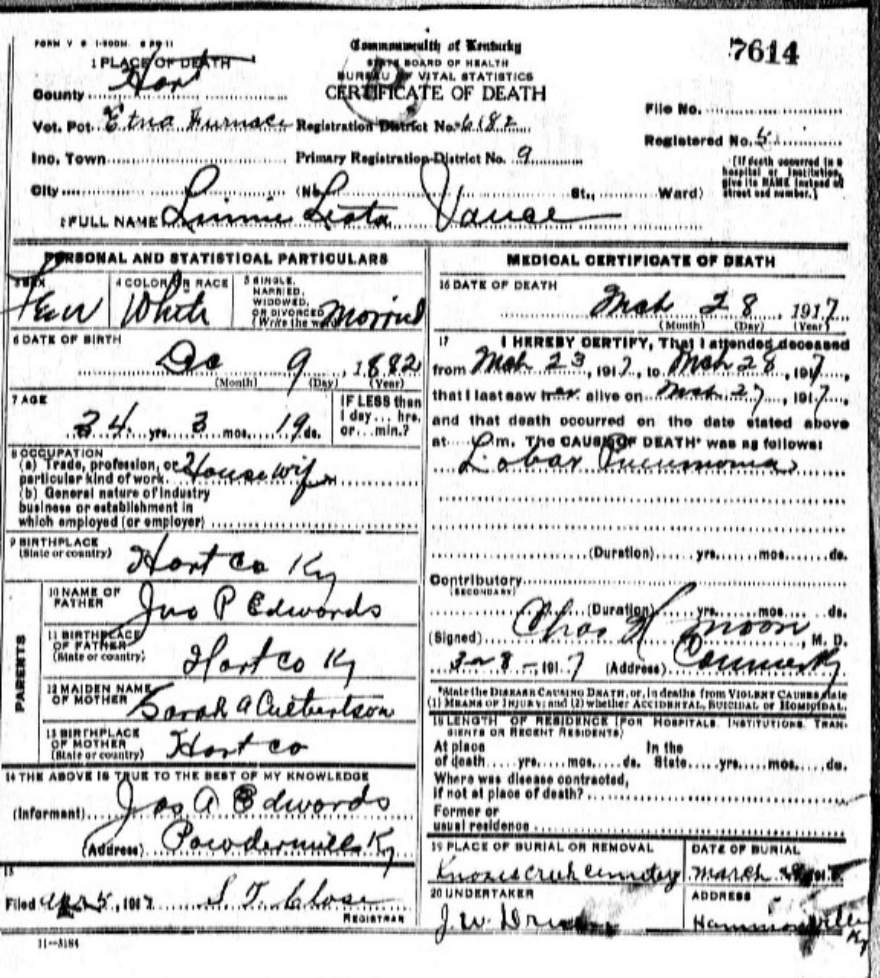 FORM V S 1-500M
Commonwealth of Kentucky
7614
1 PLACE OF DEATH
STATE BOARD OF HEALTH
BUREAU OF VITAL STATISTICS
County Hart
CERTIFICATE OF DEATH
File No.
Vot. Pct. Etna Furnace Registration District No. 6182
Registered No. 5
Ino. Town Primary Registration District No. 9
(If death occurred in a hospital or institution, give its NAME instead of street and number.)
City (No. St., Ward)
2 FULL NAME Linnie Leota Vance
PERSONAL AND STATISTICAL PARTICULARS
3 SEX Fem
4 COLOR OR RACE White
5 SINGLE, MARRIED, WIDOWED, OR DIVORCED (Write the word) Married
6 DATE OF BIRTH
Dc 9, 1882
(Month) (Day) (Year)
7 AGE
34 yrs. 3 mos. 19 ds.
IF LESS than 1 day... hrs. or... min.?
8 OCCUPATION
(a) Trade, profession, or particular kind of work Housewife
(b) General nature of industry
business or establishment in
which employed (or employer)
9 BIRTHPLACE
(State or country) Hart co Ky
PARENTS
10 NAME OF FATHER Jno P Edwards
11 BIRTHPLACE OF FATHER (State or country) Hart co Ky
12 MAIDEN NAME OF MOTHER Sarah A Culbertson
13 BIRTHPLACE OF MOTHER (State or country) Hart co
14 THE ABOVE IS TRUE TO THE BEST OF MY KNOWLEDGE
(Informant) Jas A Edwards
(Address) Powdermill Ky
15
Filed Apr 5, 1917 S. T. Close
REGISTRAR
11-3184
MEDICAL CERTIFICATE OF DEATH
16 DATE OF DEATH
Mch 28, 1917
(Month) (Day) (Year)
17 I HEREBY CERTIFY, That I attended deceased
from Mch 23, 1917, to Mch 28, 1917,
that I last saw her alive on Mch 27, 1917,
and that death occurred on the date stated above
at m. The CAUSE OF DEATH* was as follows:
Lobar Pneumonia
(Duration) yrs. mos. ds.
Contributory
(SECONDARY)
(Duration) yrs. mos. ds.
(Signed) Chas H Moon, M. D.
1917 (Address)
*State the DISEASE CAUSING DEATH, or, in deaths from VIOLENT CAUSES, state
(1) MEANS OF INJURY; and (2) whether ACCIDENTAL, SUICIDAL or HOMICIDAL.
18 LENGTH OF RESIDENCE (FOR HOSPITALS, INSTITUTIONS, TRANSIENTS OR RECENT RESIDENTS)
At place of death yrs. mos. ds. In the State yrs. mos. ds.
Where was disease contracted,
if not at place of death?
Former or
usual residence
19 PLACE OF BURIAL OR REMOVAL
Knoxes creek cemetery
DATE OF BURIAL
March
20 UNDERTAKER
J. W.
ADDRESS
Hammonville Ky